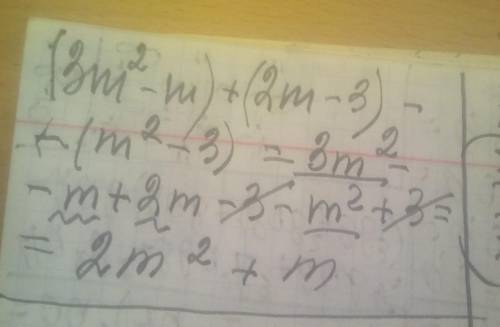 (3m² - m) + (2m - 3) -
- (m² - 3) = 3m² -
- m + 2m - 3 - m² + 3 =
= 2m² + m